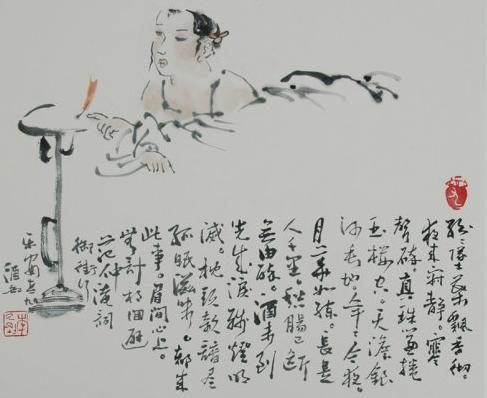 紛紛墜葉飄香砌。
夜來寂靜。寒
聲碎。真珠簾捲
玉樓空。天澹銀
河垂地。年年今夜。
月華如練。長是
人千里。愁腸已斷
無由醉。酒未到
先成淚。殘燈明
滅。枕頭欹諳盡
孤眠滋味。都來
此事。眉間心上。
無計相回避
范仲淹詞
御街行